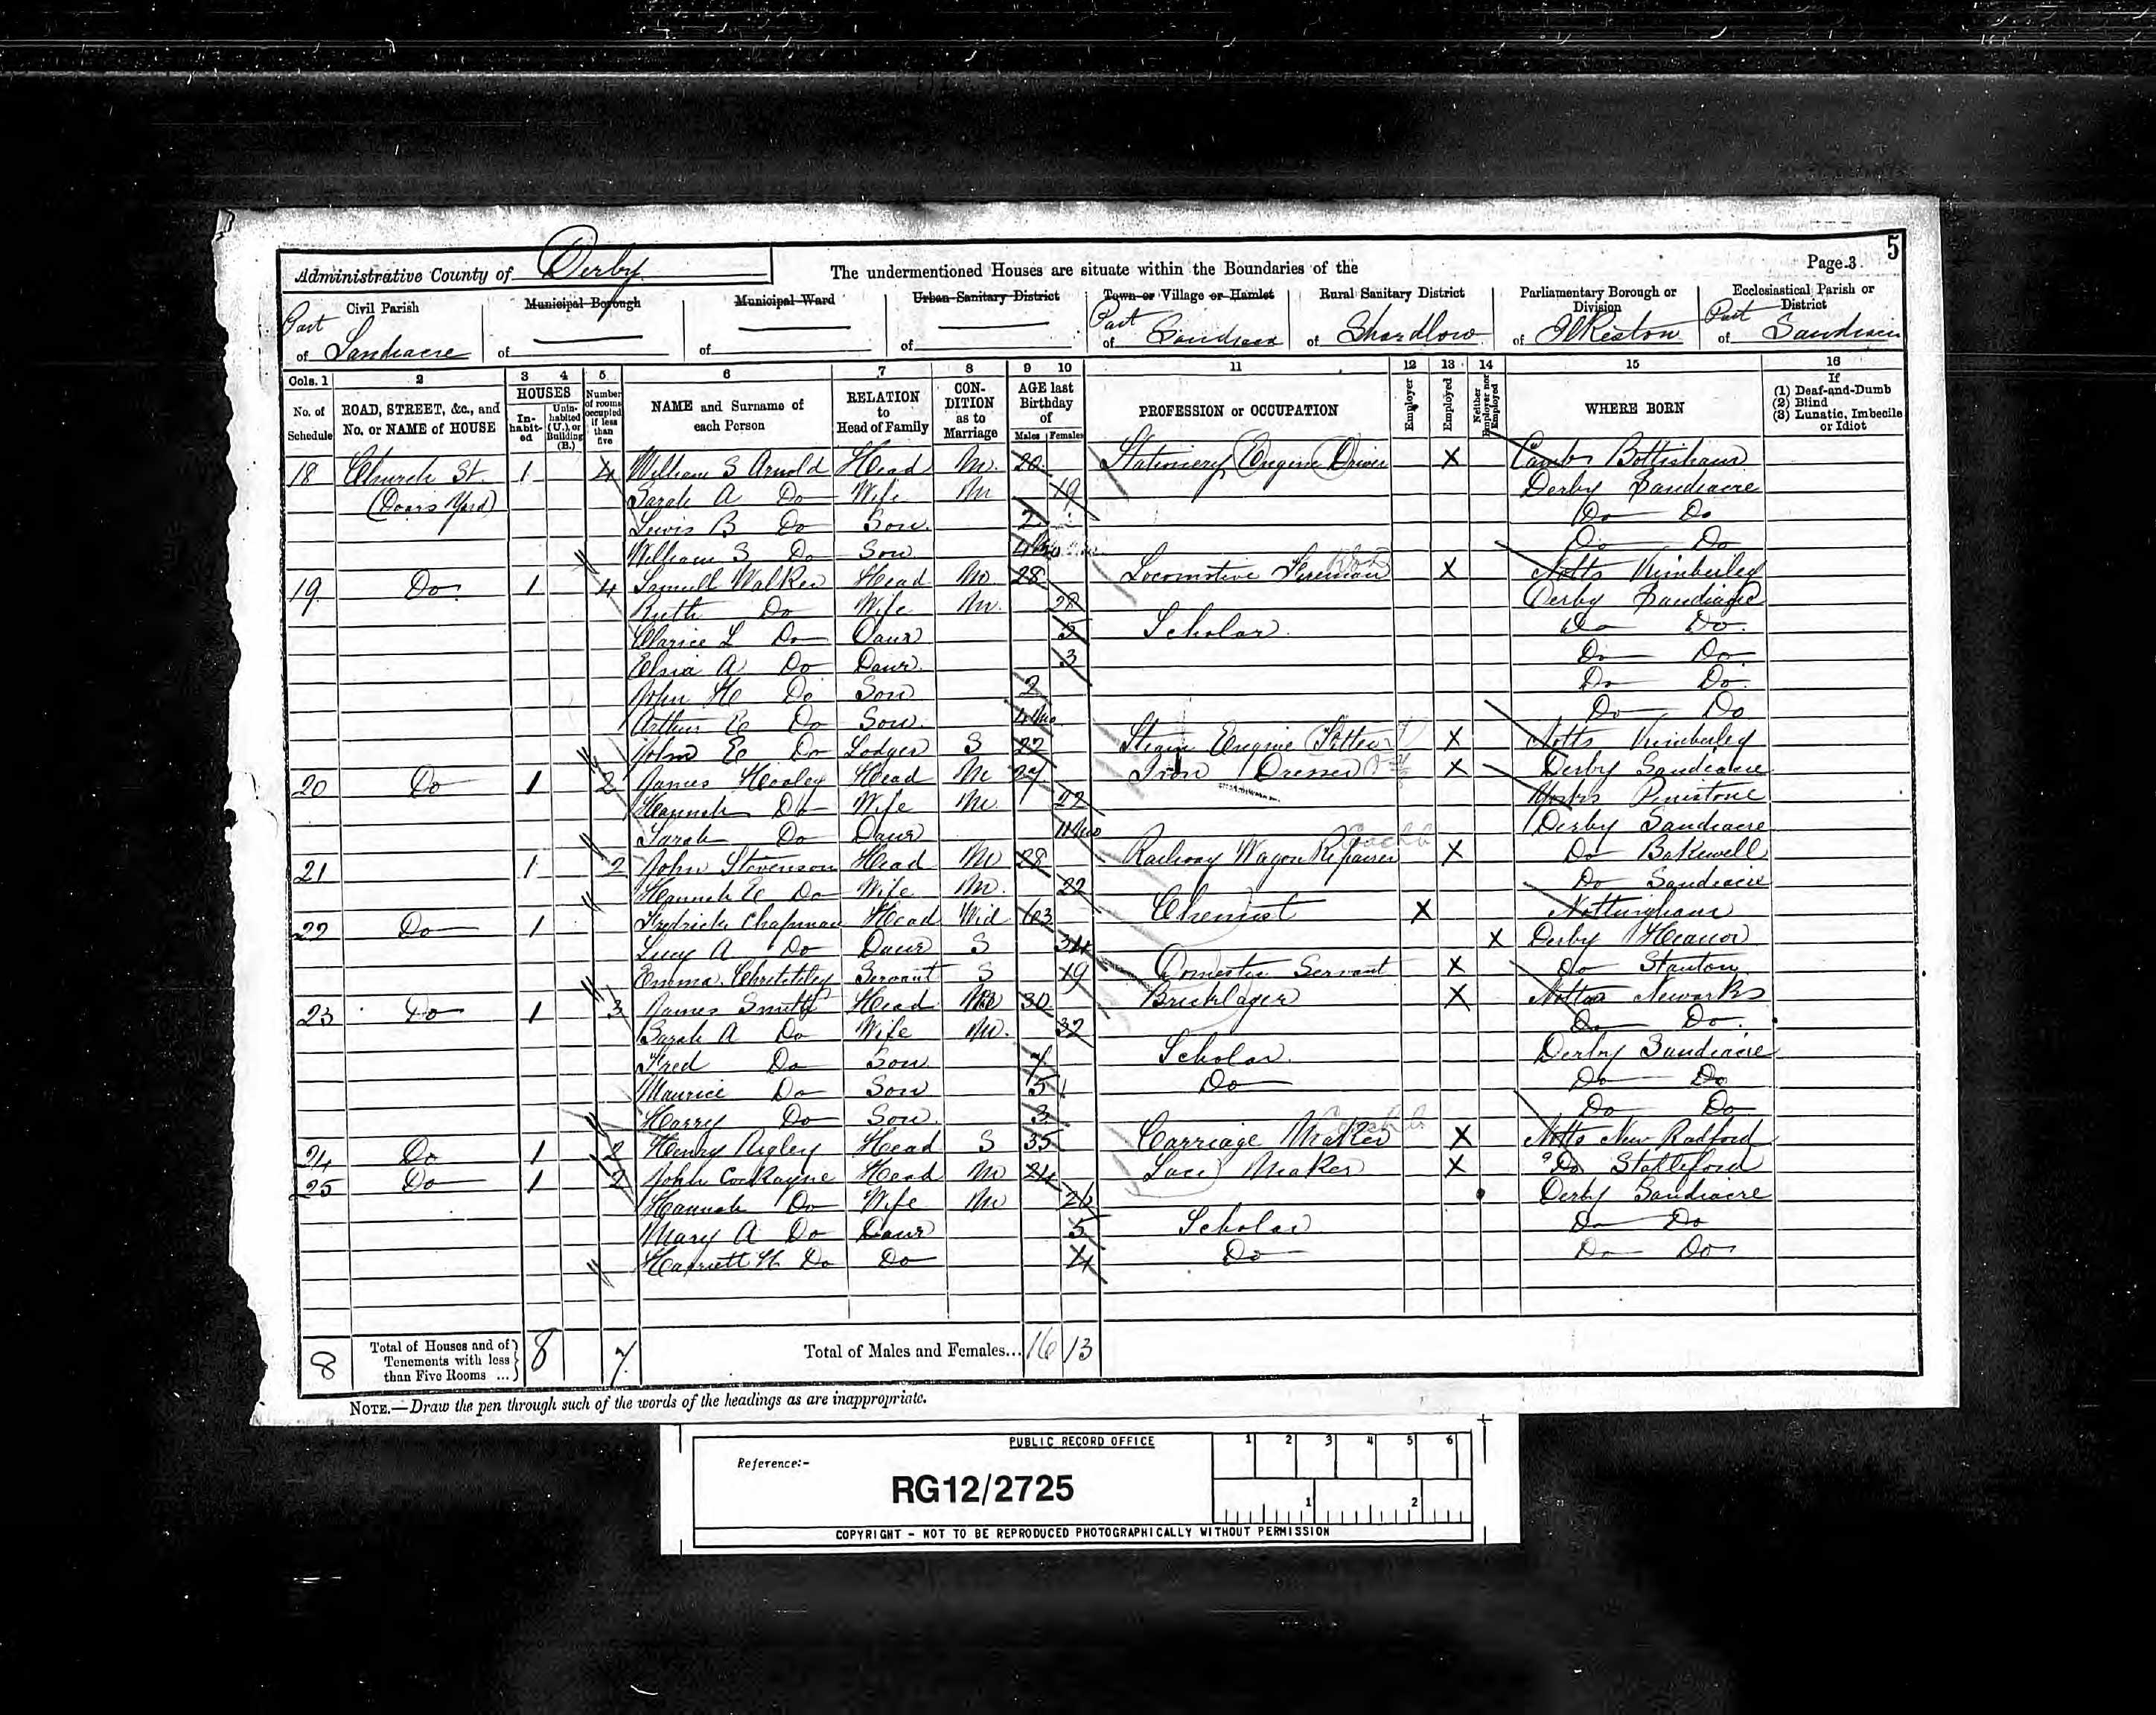 5
Administrative County of Derby
The undermentioned Houses are situate within the Boundaries of the
Page 3
Civil Parish
Municipal Borough
Municipal Ward
Urban Sanitary District
Town or Village or Hamlet
Rural Sanitary District
Parliamentary Borough or Division
Ecclesiastical Parish or District
Part of Sandiacre
of
of
of
Part of Sandiacre
of Shardlow
of Ilkeston
Part of Sandiacre
Cols. 1 2 3 4 5 6 7 8 9 10 11 12 13 14 15 16
No. of Schedule
ROAD, STREET, &c., and No. or NAME of HOUSE
HOUSES
Inhabited
Uninhabited (U.), or Building (B.)
Number of rooms occupied if less than five
NAME and Surname of each Person
RELATION to Head of Family
CONDITION as to Marriage
AGE last Birthday of
Males Females
PROFESSION or OCCUPATION
Employer
Employed
Neither Employer nor Employed
WHERE BORN
If
(1) Deaf-and-Dumb
(2) Blind
(3) Lunatic, Imbecile or Idiot
18 Church St. 1 4 William S Arnold Head M. 20 Stationery Engine Driver X Cambs Bottisham
Sarah A Do Wife M 19 Derby Sandiacre
Lewis B Do Son 2 Do Do
William S Do Son 4 Mo Do Do
19 Do 1 4 Samuell Walker Head M. 28 Locomotive Fireman X Notts Kimberley
Ruth Do Wife M. 28 Derby Sandiacre
Clarice L Do Daur 5 Scholar Do Do
Elsia A Do Daur 3 Do Do
John H Do Son 2 Do Do
Arthur E Do Son 4 Mo Do Do
John E Do Lodger S 22 Steam Engine Fitter X Notts Kimberley
20 Do 1 2 James Hooley Head M 27 Iron Dresser X Derby Sandiacre
Hannah Do Wife M. 22 Yorks Penistone
Sarah Do Daur 11 Mo Derby Sandiacre
21 1 2 John Stevenson Head M 28 Railway Wagon Repairer X Do Bakewell
Hannah E Do Wife M. 22 Do Sandiacre
22 Do 1 Fredrick Chapman Head Wid 63 Chemist X Nottingham
Lucy A Do Daur S 34 X Derby Heanor
Emma Servant S 19 Domestic Servant X Do Stanton
23 Do 1 3 James Smith Head M 30 Bricklayer X Notts Newark
Sarah A Do Wife M. 32 Do Do
Fred Do Son 7 Scholar Derby Sandiacre
Maurice Do Son 5 Do Do Do
Harry Do Son 3 Do Do
24 Do 1 2 Henry Rigley Head S 35 Carriage Maker X Notts New Radford
25 Do 1 2 John Cockayne Head M 24 Lace Maker X Do Stapleford
Hannah Do Wife M 26 Derby Sandiacre
Mary A Do Daur 5 Scholar Do Do
Harriett H Do Do 4 Do Do Do
8 Total of Houses and of Tenements with less than Five Rooms ... 8 7 Total of Males and Females... 16 13
NOTE.—Draw the pen through such of the words of the headings as are inappropriate.
PUBLIC RECORD OFFICE
1 2 3 4 5 6
Reference:-
RG12/2725
1 2
COPYRIGHT - NOT TO BE REPRODUCED PHOTOGRAPHICALLY WITHOUT PERMISSION